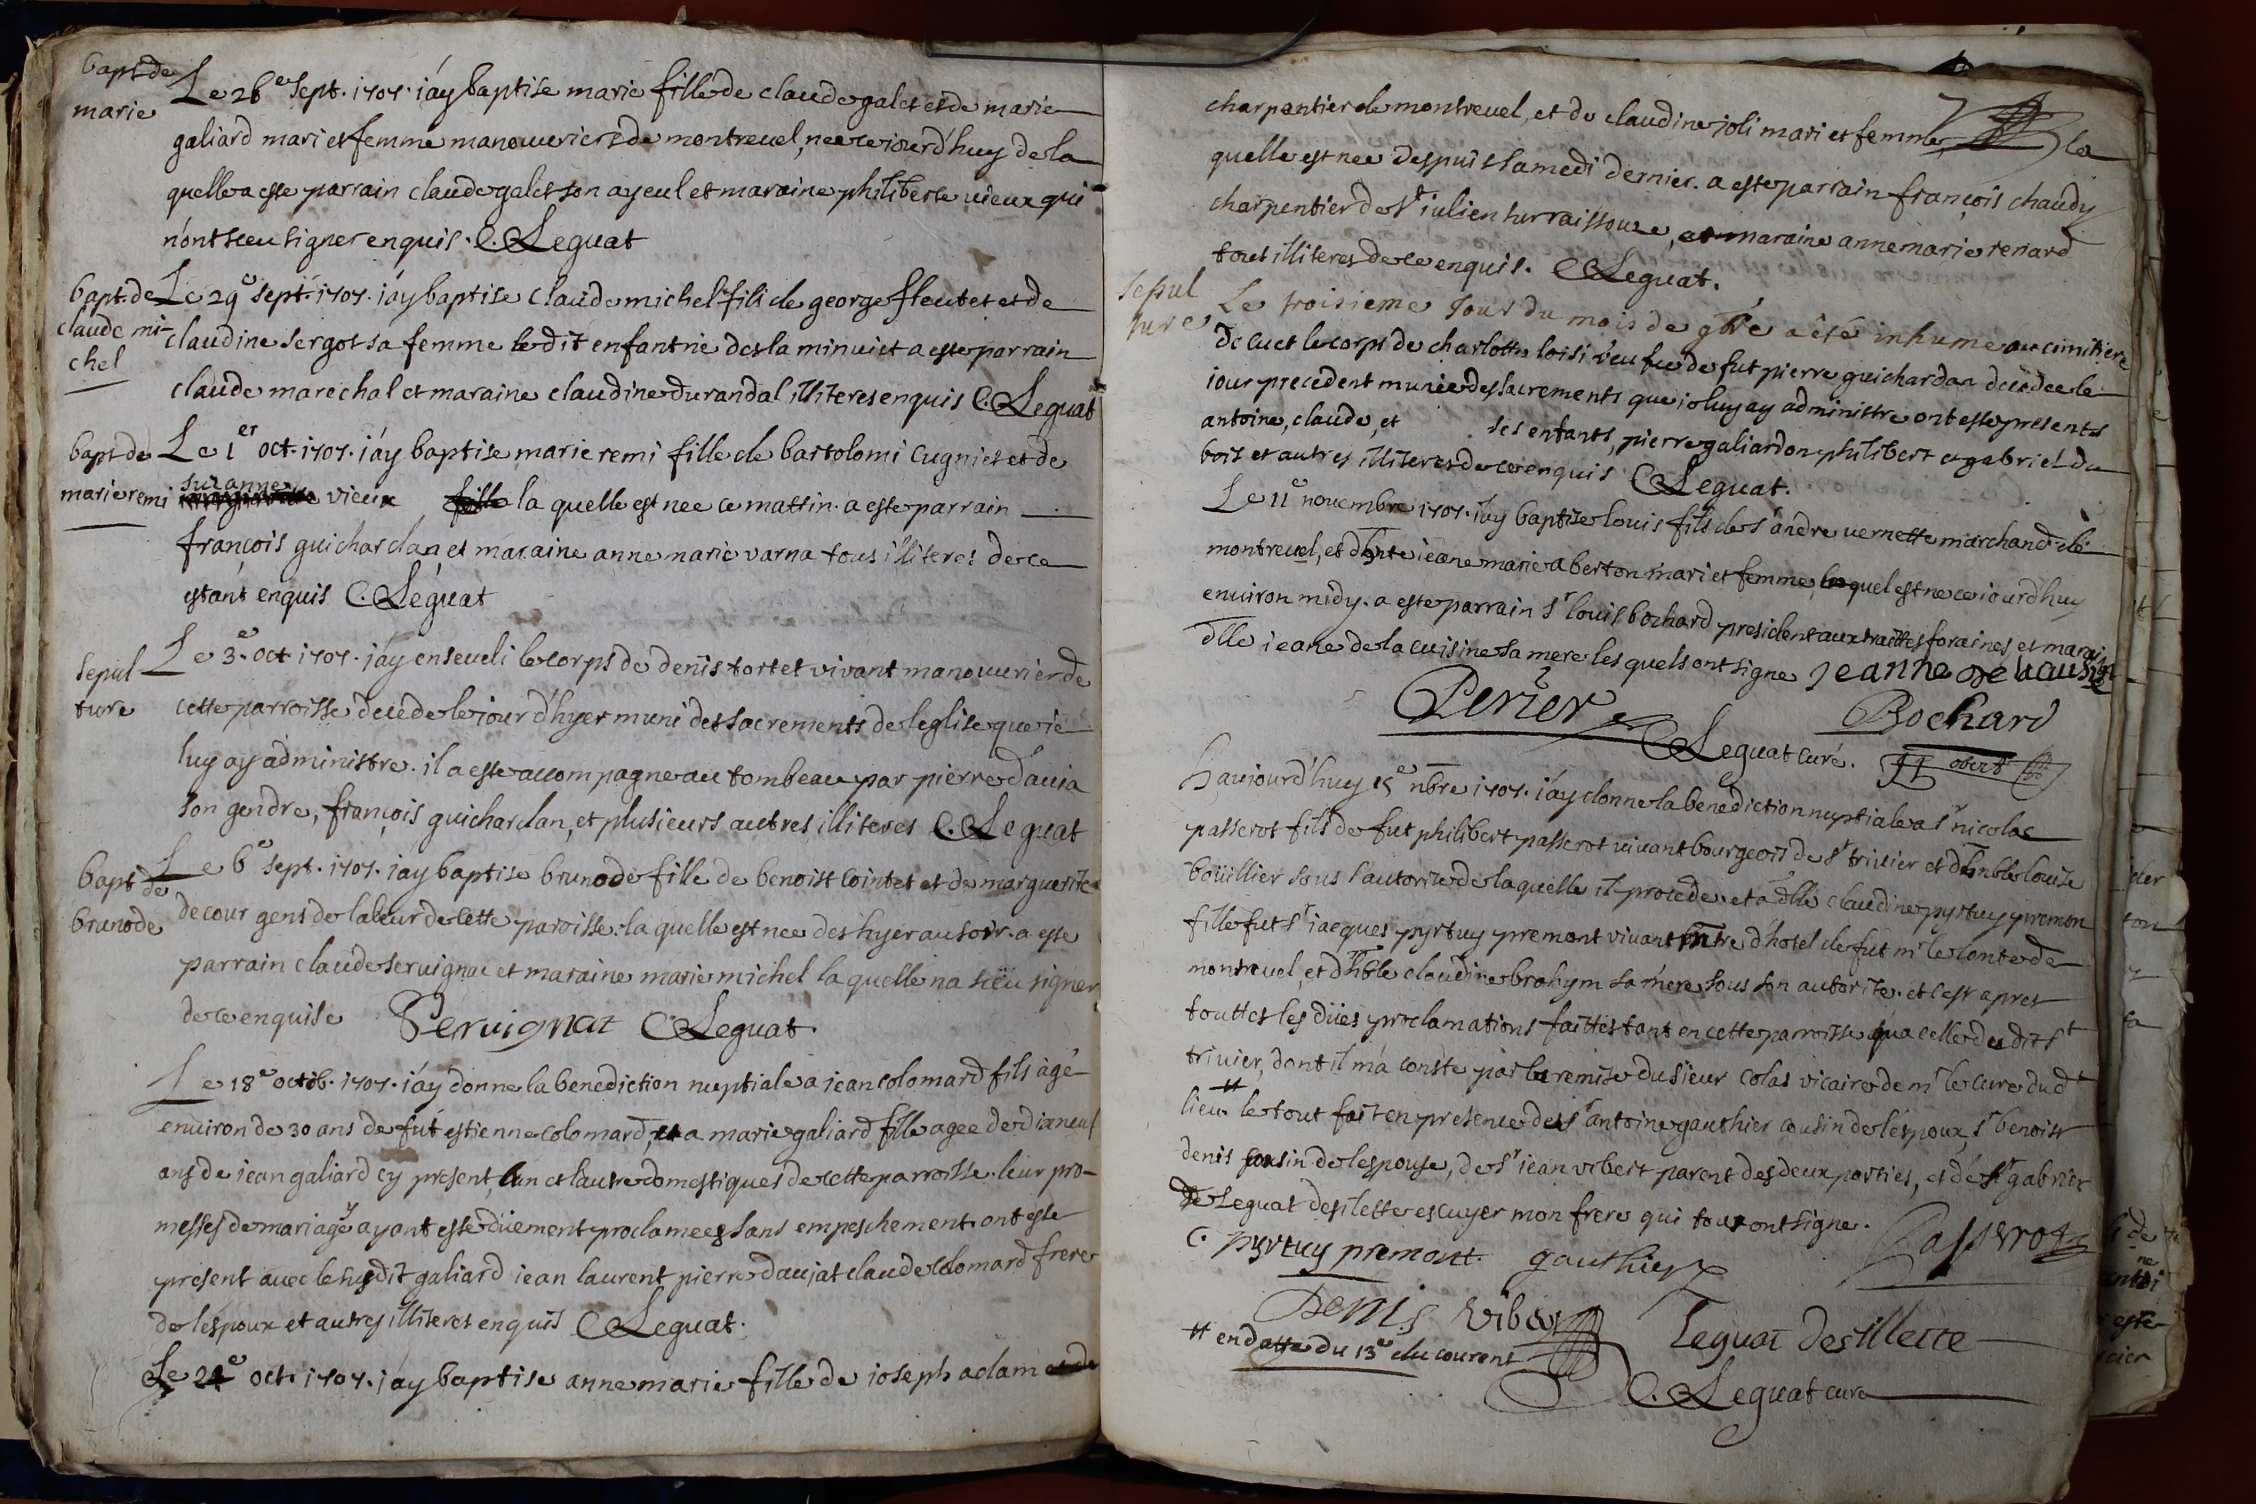 bapt. de
marie
Le 26e sept. 1707. i'ay baptise marie fille de claude galet et de marie
galiard mari et femme manouuriers de montreuel, nee ce iourd'huy de la
quelle a este parrain claude galet son ayeul et maraine philiberte uieux qui
n'ont sceu signer enquis. C. Leguat
bapt. de
claude mi-
chel
Le 29e sept. 1707. i'ay baptise claude michel fils de george fleutet et de
claudine sergot sa femme ledit enfant né des la minuict a este parrain
claude marechal et maraine claudine durandal illiteres enquis C. Leguat
bapt de
marie remi
Le 1er oct. 1707. i'ay baptise marie remi fille de bartolomi Cugniet et de
suzanne
vieux la quelle est nee ce mattin. a este parrain
françois guichardan et maraine anne marie varna tous illiteres de ce
estant enquis C. Leguat
sepul
ture
Le 3e oct 1707. i'ay enseueli le corps de denis tortet vivant manouurier de
cette parroisse decede le jour d'hyer muni des sacrements de leglise que ie
luy ay administre. il a este accompagne au tombeau par pierre dauia
son gendre, françois guichardan, et plusieurs autres illiteres C. Leguat
bapt de
brunode
Le 6e sept. 1707. i'ay baptise brunode fille de benoist Cointet et de marguerite
decour gens de labeur de cette paroisse. la quelle est nee des hyer au soir. a este
parrain claude seruignat et maraine marie michel la quelle na sceu signer
de ce enquise Peruignat C. Leguat.
Le 18e octob. 1707. i'ay donne la benediction nuptiale a iean colomard fils agé
enuiron de 30 ans de fut estienne colomard, et a marie galiard fille agee de dixneuf
ans de iean galiard cy present, lun et lautre domestiques de cette parroisse. leur pro-
messes de mariage ayant este duement proclamees sans empeschement. ont este
present auec le susdit galiard iean laurent pierre daujat claude colomard frere
de l'espoux et autres illiteres enquis C. Leguat.
Le 24e oct. 1707. i'ay baptise anne marie fille de ioseph adam et de
charpentier de montreuel, et de claudine ioli mari et femme, la
quelle est nee despuis samedi dernier. a este parrain françois chaudy
charpentier de st iulien sur raissouze, et maraine anne marie renard
tout illiteres de ce enquis. C. Leguat.
sepul
ture
Le troisieme jour du mois de 9bre a été inhumé au cimitiere
de cuet le corps de charlotte loisi veufue de fut pierre guichardan decedee le
iour precedent munie des sacrements que ie luy ay administre ont este presents
antoine, claude, et ses enfants, pierre galiardon philibert et gabriel du
bois et autres illiteres de ce enquis C. Leguat.
Le 11e nouembre 1707. i'ay baptise louis fils de sr andre uernette marchand de
montreuel, et d'hnte ieane marie aberton mari et femme, lequel est ne ce iourd'huy
enuiron midy. a este parrain sr louis bochard president aux traittes foraines, et marai
dlle ieane de la cuisine sa mere les quels ont signe Jeanne de la cuisine
Perier Bochard
C. Leguat curé.
aujourd'huy 15e nbre 1707. i'ay donne la benediction nuptiale a sr nicolas
passerot fils de fut philibert passerot vivant bourgeois de st triuier et d'hnble louise
boüillier sous l'autorite de laquelle il procede. et a dlle claudine pyrtuy premon
fille fut sr iacques pyrtuy premont vivant mtre d'hotel de fut mr le conte de
montreuel, et d'hble claudine brohym sa mere sous son autorite. et c'est apres
touttes les düés proclamations faittes tant en cette parroisse qua celle du dit st
triuier, dont il m'a conste par la remise du sieur colas vicaire de mr le cure dudt
lieu. # le tout fait en presence des sr antoine gauthier cousin de l'espoux, sr benoist
denis cousin de lespouse, de sr iean vibert parent des deux parties, et de sr gabriel
de Leguat desilette escuyer mon frere qui tous ont signe.
C. pyrtuy premont. gauthier Passerot
Denis Vibert Leguat Desillette
# en datte du 13e du courent
C. Leguat cure